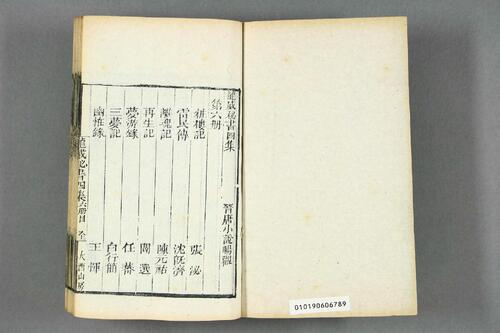 龍威秘書四集 晉唐小說暢觀
第六冊
粧樓記 張泌
雷民傳 沈既濟
離魂記 陳元祐
再生記 閻選
夢游錄 任蕃
三夢記 白行簡
幽怪錄 王惲
龍威秘書四集六冊目 大酉山房
010190606789